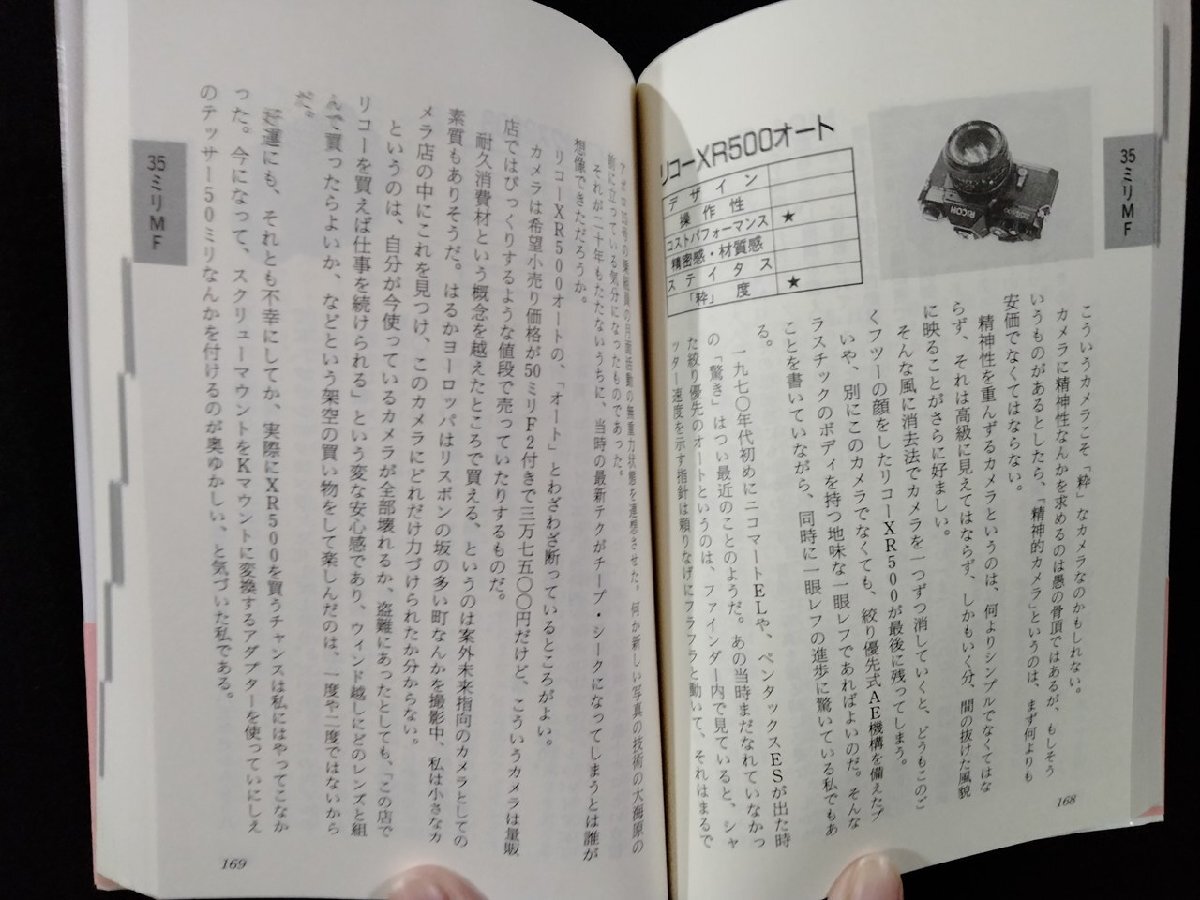 35ミリMF
RICOH
リコーXR500オート
デザイン
操作性 ★
コストパフォーマンス
精密感・材質感
ステイタス ★
「粋」度
こういうカメラこそ「粋」なカメラなのかもしれない。
カメラに精神性なんかを求めるのは愚の骨頂ではあるが、もしそう
いうものがあるとしたら、「精神的カメラ」というのは、まず何よりも
安価でなくてはならない。
精神性を重んずるカメラというのは、何よりシンプルでなくてはな
らず、それは高級に見えてはならず、しかもいく分、間の抜けた風貌
に映ることがさらに好ましい。
そんな風に消去法でカメラを一つずつ消していくと、どうもこのご
くフツーの顔をしたリコーXR500が最後に残ってしまう。
いや、別にこのカメラでなくても、絞り優先式AE機構を備えたプ
ラスチックのボディを持つ地味な一眼レフであればよいのだ。そんな
ことを書いていながら、同時に一眼レフの進歩に驚いている私でもあ
る。
一九七〇年代初めにニコマートELや、ペンタックスESが出た時
の「驚き」はつい最近のことのようだ。あの当時まだなれていなかっ
た絞り優先のオートというのは、ファインダー内で見ていると、シャ
ッター速度を示す指針は頼りなげにフラフラと動いて、それはまるで
168
アポロ11号の乗組員の月面活動の無重力状態を連想させた。何か新しい写真の技術の大海原の
前に立っている気分になったものであった。
それが二十年もたたないうちに、当時の最新テクがチープ・シークになってしまうとは誰が
想像できただろうか。
リコーXR500オートの、「オート」とわざわざ断っているところがよい。
カメラは希望小売り価格が50ミリF2付きで三万七五〇〇円だけど、こういうカメラは量販
店ではびっくりするような値段で売っていたりするものだ。
耐久消費材という概念を越えたところで買える、というのは案外未来指向のカメラとしての
素質もありそうだ。はるかヨーロッパはリスボンの坂の多い町なんかを撮影中、私は小さなカ
メラ店の中にこれを見つけ、このカメラにどれだけ力づけられたか分からない。
というのは、自分が今使っているカメラが全部壊れるか、盗難にあったとしても、「この店で
リコーを買えば仕事を続けられる」という変な安心感であり、ウィンド越しにどのレンズと組
んで買ったらよいか、などという架空の買い物をして楽しんだのは、一度や二度ではないから
だ。
幸運にも、それとも不幸にしてか、実際にXR500を買うチャンスは私にはやってこなか
った。今になって、スクリューマウントをKマウントに変換するアダプターを使っていにしえ
のテッサー50ミリなんかを付けるのが奥ゆかしい、と気づいた私である。
35ミリMF
169